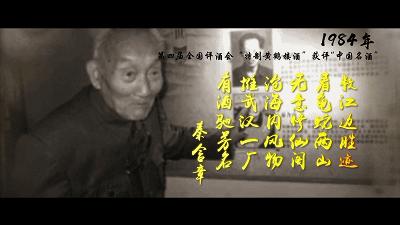 1984年
第四届全国评酒会“特制黄鹤楼酒”获评“中国名酒”
江边胜迹
龟蛇两山
无意仙阁
海内风物
惟武汉一厂
有酒驰芳名
秦含章